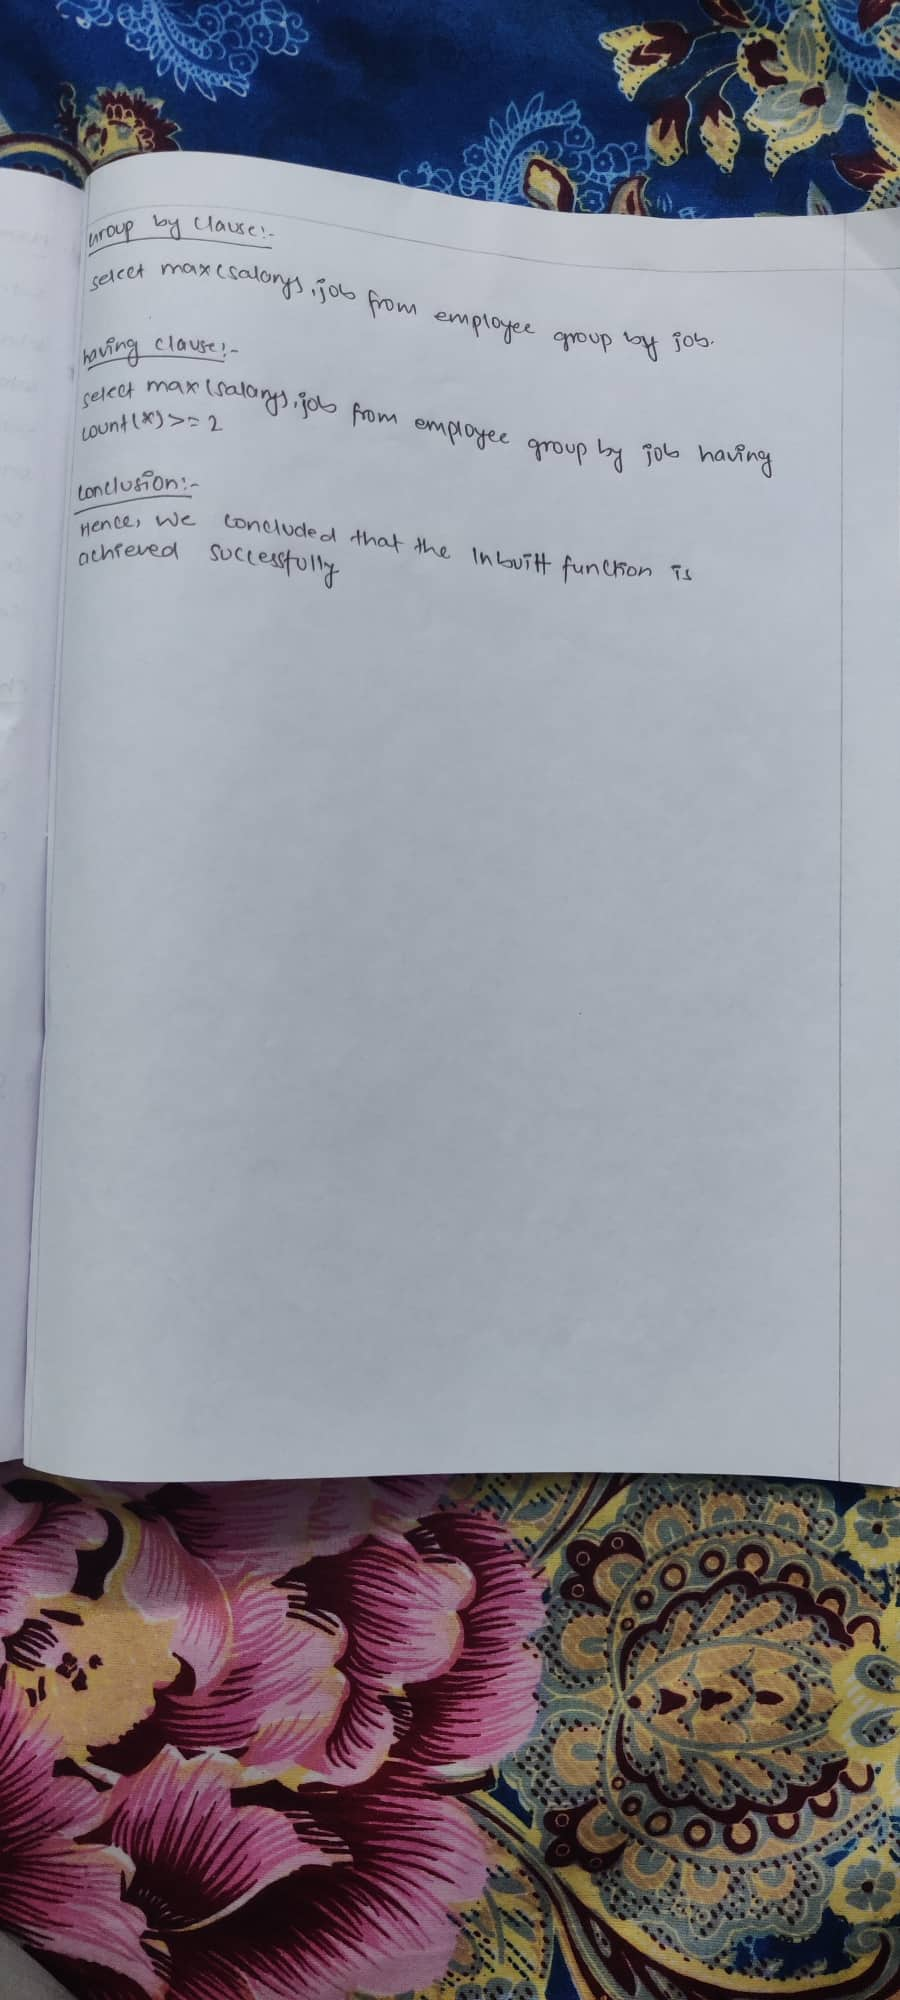 Group by Clause:-
select max(salary), job from employee group by job.
having clause:-
select max(salary), job from employee group by job having
count(*) >= 2
Conclusion:-
Hence, we concluded that the Inbuilt function is
achieved successfully